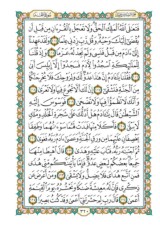 فَتَعَالَى اللَّهُ الْمَلِكُ الْحَقُّ وَلَا تَعْجَلْ بِالْقُرْءَانِ مِن قَبْلِ أَن
يُقْضَىٰ إِلَيْكَ وَحْيُهُ وَقُل رَّبِّ زِدْنِي عِلْمًا وَلَقَدْ عَهِدْنَا
إِلَىٰ ءَادَمَ مِن قَبْلُ فَنَسِيَ وَلَمْ نَجِدْ لَهُ عَزْمًا وَإِذْ قُلْنَا
لِلْمَلَائِكَةِ اسْجُدُوا لِآدَمَ فَسَجَدُوا إِلَّا إِبْلِيسَ أَبَىٰ
فَقُلْنَا يَا ءَادَمُ إِنَّ هَٰذَا عَدُوٌّ لَّكَ وَلِزَوْجِكَ فَلَا يُخْرِجَنَّكُمَا
مِنَ الْجَنَّةِ فَتَشْقَىٰ إِنَّ لَكَ أَلَّا تَجُوعَ فِيهَا وَلَا تَعْرَىٰ
وَأَنَّكَ لَا تَظْمَؤُا فِيهَا وَلَا تَضْحَىٰ فَوَسْوَسَ إِلَيْهِ
الشَّيْطَانُ قَالَ يَا ءَادَمُ هَلْ أَدُلُّكَ عَلَىٰ شَجَرَةِ الْخُلْدِ وَمُلْكٍ لَّا
يَبْلَىٰ فَأَكَلَا مِنْهَا فَبَدَتْ لَهُمَا سَوْءَاتُهُمَا وَطَفِقَا
يَخْصِفَانِ عَلَيْهِمَا مِن وَرَقِ الْجَنَّةِ وَعَصَىٰ ءَادَمُ رَبَّهُ فَغَوَىٰ
ثُمَّ اجْتَبَاهُ رَبُّهُ فَتَابَ عَلَيْهِ وَهَدَىٰ قَالَ اهْبِطَا مِنْهَا
جَمِيعًا بَعْضُكُمْ لِبَعْضٍ عَدُوٌّ فَإِمَّا يَأْتِيَنَّكُم مِّنِّي هُدًى
فَمَنِ اتَّبَعَ هُدَايَ فَلَا يَضِلُّ وَلَا يَشْقَىٰ وَمَنْ أَعْرَضَ عَن
ذِكْرِي فَإِنَّ لَهُ مَعِيشَةً ضَنكًا وَنَحْشُرُهُ يَوْمَ الْقِيَامَةِ
أَعْمَىٰ قَالَ رَبِّ لِمَ حَشَرْتَنِي أَعْمَىٰ وَقَدْ كُنتُ بَصِيرًا
٣٢٠